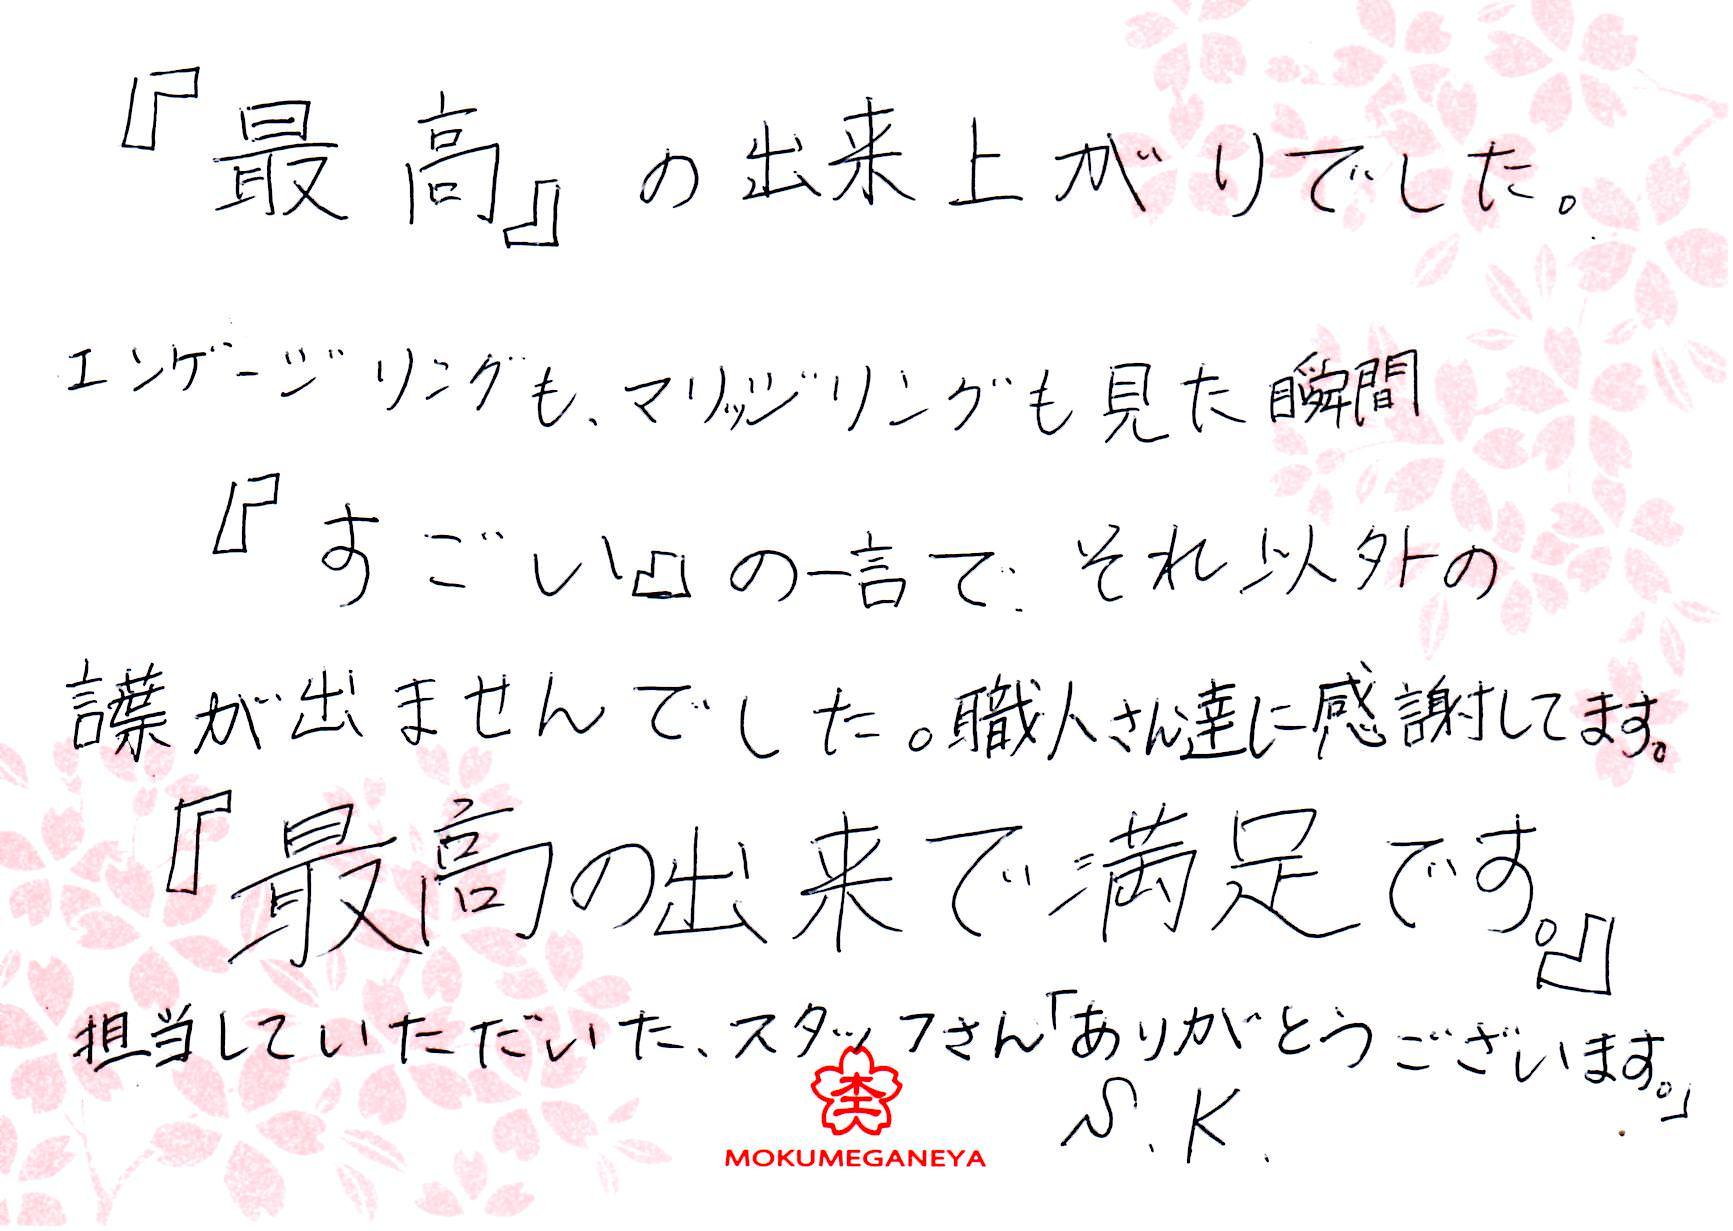 『最高』の出来上がりでした。
エンゲージリングも、マリッジリングも見た瞬間
『すごい』の一言で、それ以外の
言葉が出ませんでした。職人さん達に感謝してます。
『最高の出来で満足です。』
担当していただいた、スタッフさん「ありがとうございます。」
S.K.
MOKUMEGANEYA